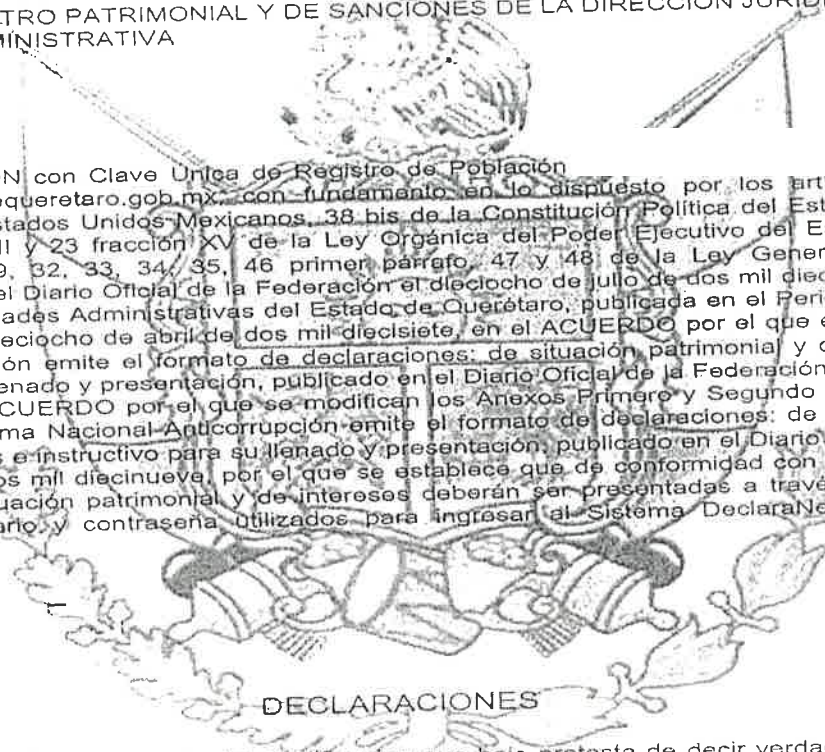 TRO PATRIMONIAL Y DE SANCIONES DE LA DIRECCIÓN JURÍDI
MINISTRATIVA
N con Clave Única de Registro de Población
queretaro.gob.mx, con fundamento en lo dispuesto por los art
stados Unidos Mexicanos, 38 bis de la Constitución Política del Est
II y 23 fracción XV de la Ley Orgánica del Poder Ejecutivo del E
9, 32, 33, 34, 35, 46 primer párrafo, 47 y 48 de la Ley Gener
el Diario Oficial de la Federación el dieciocho de julio de dos mil diec
ades Administrativas del Estado de Querétaro, publicada en el Peri
eciocho de abril de dos mil diecisiete, en el ACUERDO por el que e
ón emite el formato de declaraciones: de situación patrimonial y d
enado y presentación, publicado en el Diario Oficial de la Federación
CUERDO por el que se modifican los Anexos Primero y Segundo
ma Nacional Anticorrupción emite el formato de declaraciones: de
s e instructivo para su llenado y presentación, publicado en el Diario
os mil diecinueve, por el que se establece que de conformidad con
uación patrimonial y de intereses deberán ser presentadas a travé
ario y contraseña utilizados para ingresar al Sistema DeclaraNe
DECLARACIONES
bajo protesta de decir verda